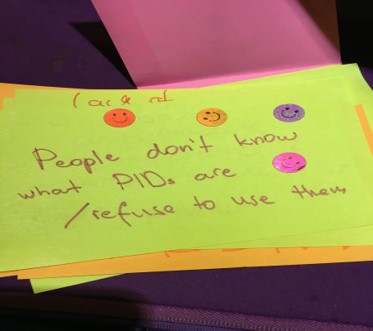 People don't know
what PIDs are
/refuse to use them